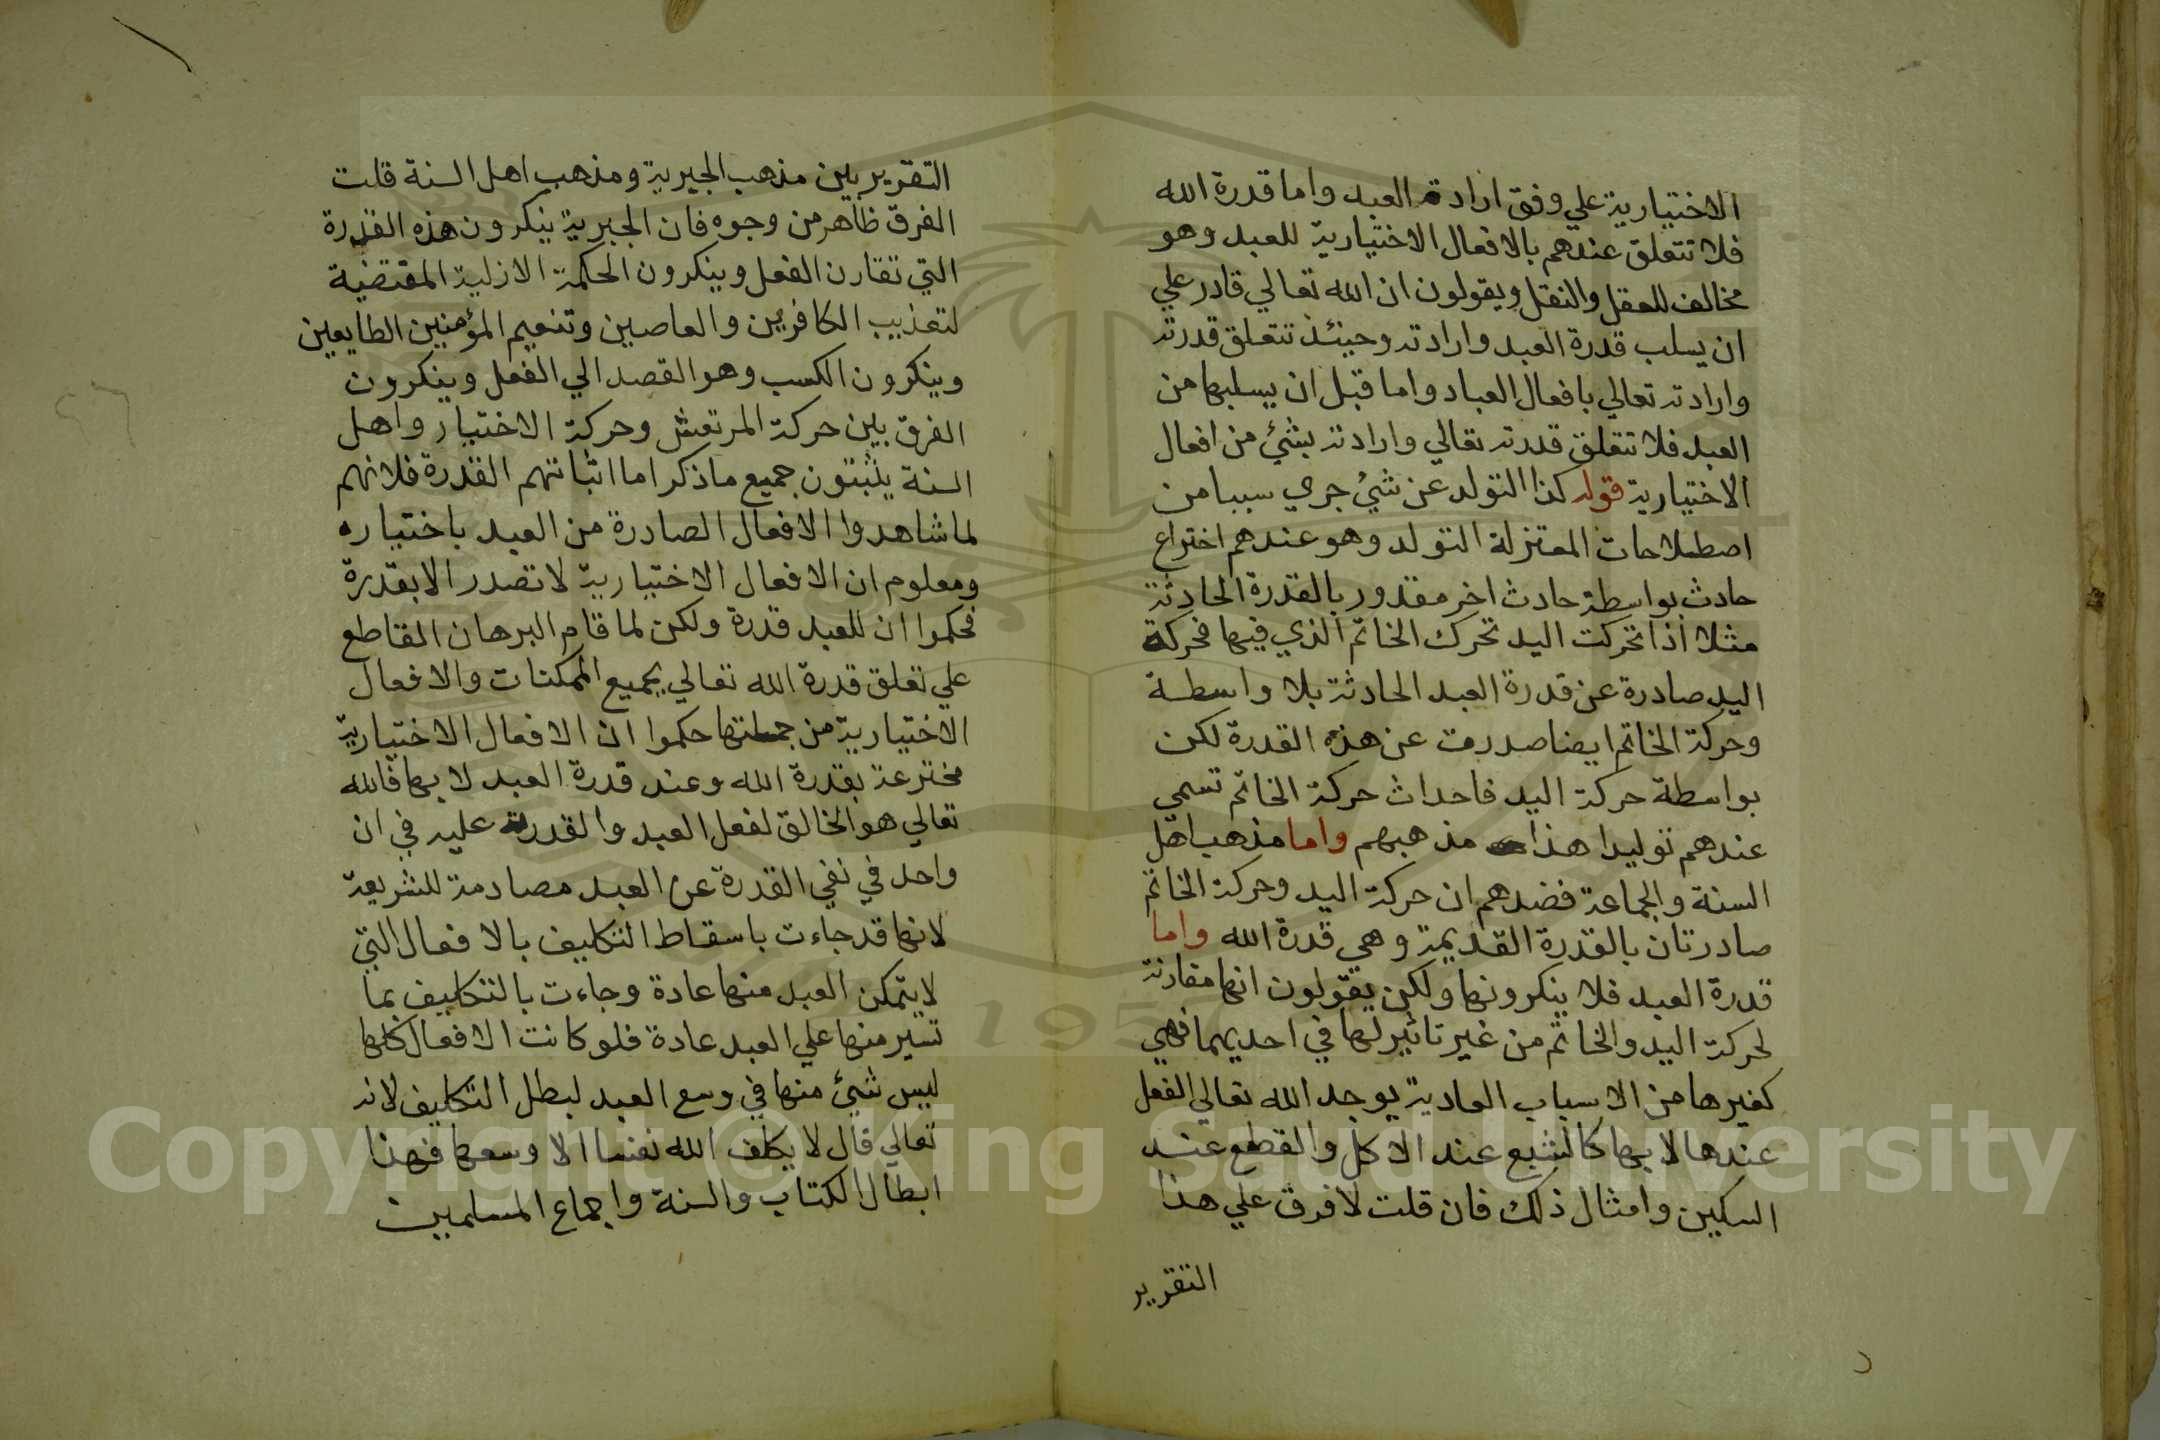 الاختيارية علي وفق ارادة العبد واما قدرة الله
فلا تتعلق عندهم بالافعال الاختيارية للعبد وهو
مخالف للعقل والنقل ويقولون ان الله تعالي قادر علي
ان يسلب قدرة العبد وارادته وحينئذ تتعلق قدرته
وارادته تعالي بافعال العباد واما قبل ان يسلبها من
العبد فلا تتعلق قدرته تعالي وارادته بشئ من افعال
الاختيارية قوله كذا التولد عن شئ جري سببا من
اصطلاحات المعتزلة التولد وهو عندهم اختراع
حادث بواسطة حادث اخر مقدور بالقدرة الحادثة
مثلا اذا تحركت اليد تحرك الخاتم الذي فيها فحركة
اليد صادرة عن قدرة العبد الحادثة بلا واسطة
وحركة الخاتم ايضا صدرت عن هذه القدرة لكن
بواسطة حركة اليد فاحداث حركة الخاتم تسمي
عندهم توليدا هذا مذهبهم واما مذهب اهل
السنة والجماعة فضدهم ان حركة اليد وحركة الخاتم
صادرتان بالقدرة القديمة وهي قدرة الله واما
قدرة العبد فلا ينكرونها ولكن يقولون انها مقارنة
لحركة اليد والخاتم من غير تاثير لها في احديهما فهي
كغيرها من الاسباب العادية يوجد الله تعالي الفعل
عندها لا بها كالشبع عند الاكل والقطع عند
السكين وامثال ذلك فان قلت لا فرق علي هذا
التقرير
التقرير بين مذهب الجبرية ومذهب اهل السنة قلت
الفرق ظاهر من وجوه فان الجبرية ينكرون هذه القدرة
التي تقارن الفعل وينكرون الحكمة الازلية المقتضية
لتعذيب الكافرين والعاصين وتنعيم المؤمنين الطايعين
وينكرون الكسب وهو القصد الي الفعل وينكرون
الفرق بين حركة المرتعش وحركة الاختيار واهل
السنة يثبتون جميع ما ذكر اما اثباتهم القدرة فلانهم
لما شاهدوا الافعال الصادرة من العبد باختياره
ومعلوم ان الافعال الاختيارية لا تصدر الا بقدرة
فحكموا ان للعبد قدرة ولكن لما قام البرهان القاطع
علي تعلق قدرة الله تعالي بجميع الممكنات والافعال
الاختيارية من جملتها حكموا ان الافعال الاختيارية
مخترعة بقدرة الله وعند قدرة العبد لا بها فالله
تعالي هو الخالق لفعل العبد والقدرة عليه في ان
واحد في نفي القدرة عن العبد مصادمة للشريعة
لانها قد جاءت باسقاط التكليف بالافعال التي
لا يتمكن العبد منها عادة وجاءت بالتكليف بما
تسير منها علي العبد عادة فلو كانت الافعال كلها
ليس شئ منها في وسع العبد لبطل التكليف لانه
تعالي قال لا يكلف الله نفسا الا وسعها فهذا
ابطال الكتاب والسنة واجماع المسلمين
Copyright © King Saud University
1957